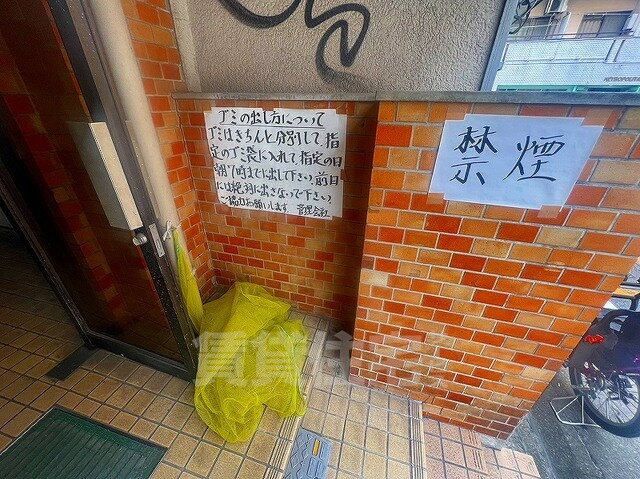 ゴミの出し方について
ゴミはきちんと分別して、指
定のゴミ袋に入れ、指定の日
朝7時までに出して下さい。前日
には絶対に出さないで下さい。
ご協力お願いします。管理会社
禁煙
賃貸住宅
METROPOLITAN